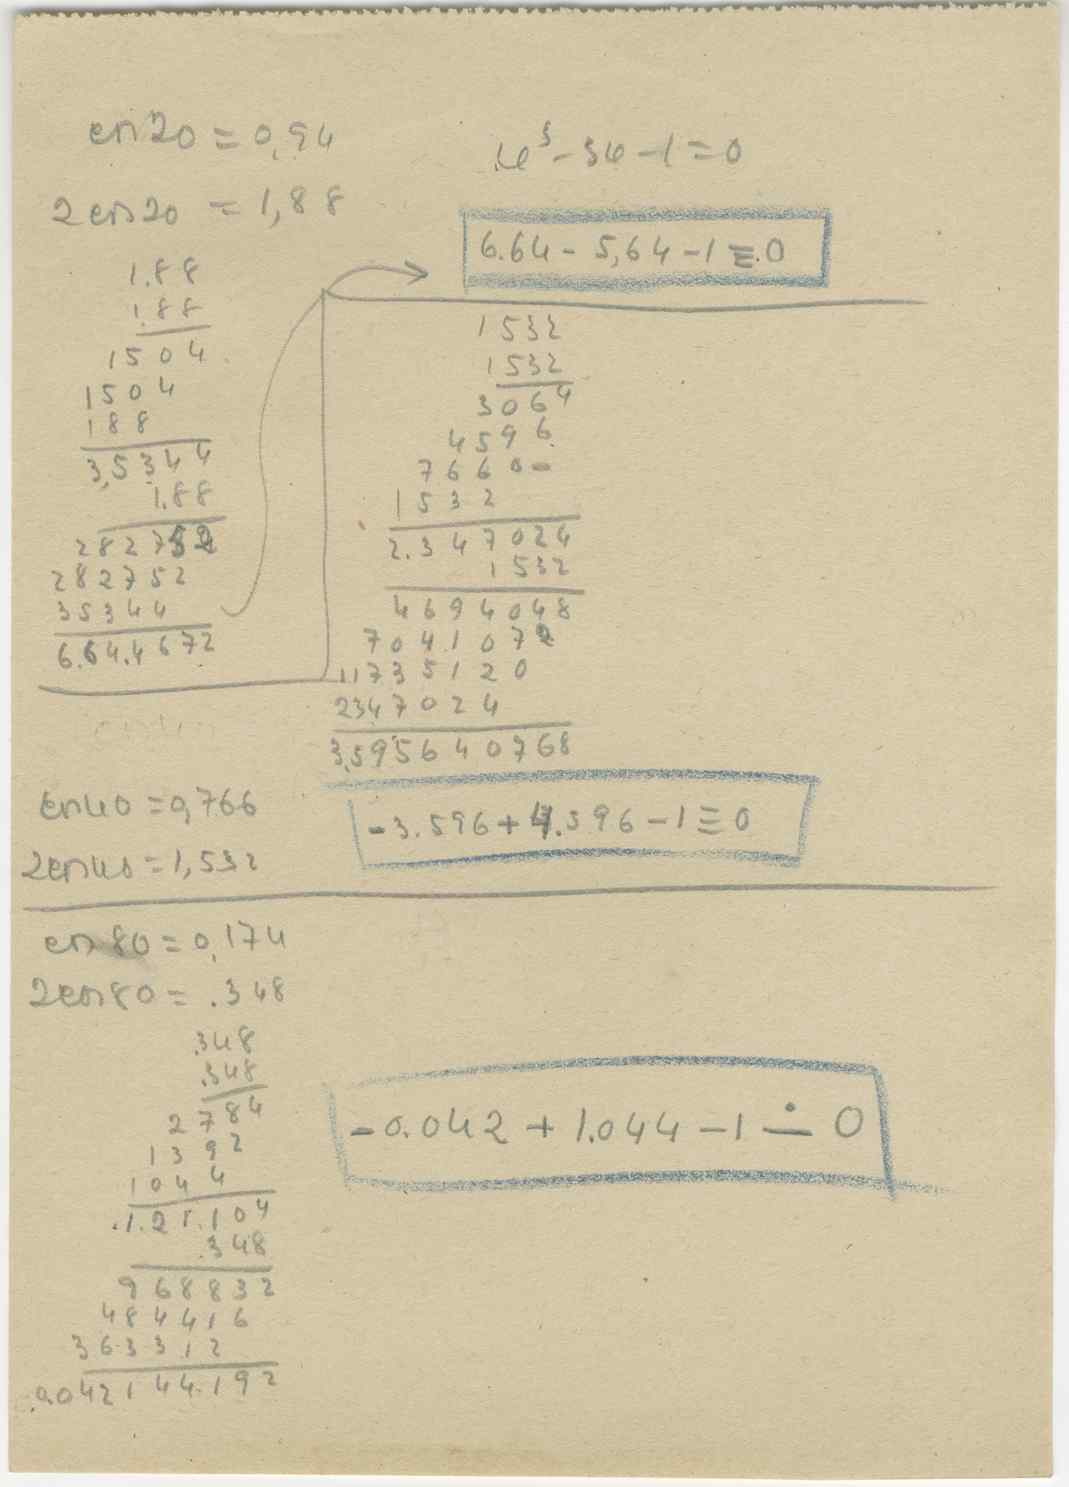 cos 20 = 0,94
2 cos 20 = 1,88
1.88
1.88
1504
1504
188
3,5344
1.88
282752
282752
35344
6.64.4672
u³ - 3u - 1 = 0
6.64 - 5,64 - 1 ≡ 0
1532
1532
3064
4596
7660-
1532
2.347024
1532
4694048
7041072
11735120
2347024
3,595640768
cos 40 = 0,766
2 cos 40 = 1,532
-3.596 + 4.596 - 1 ≡ 0
cos 80 = 0,174
2 cos 80 = .348
.348
.348
2784
1392
1044
.1.21.104
.348
968832
484416
363312
0.042144.192
-0.042 + 1.044 - 1 ≐ 0